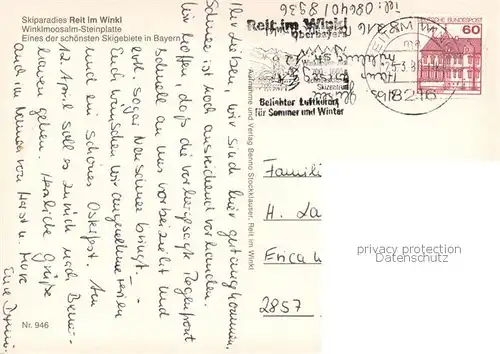 Skiparadies Reit im Winkl
Winklmoosalm-Steinplatte
Eines der schönsten Skigebiete in Bayern
Ihr Lieben, wir sind hier gut angekommen.
Schnee ist noch ausreichend vorhanden.
Wir hoffen, daß die vorhergesagte Regenfront
schnell an uns vorbeizieht und
evtl. sogar Neuschnee bringt. –
Euch wünschen wir angenehme Ferien
und ein schönes Osterfest. Am
12. April soll es zurück nach
gehen. Herzliche Grüße
auch im Namen von Horst u.
Eure
Nr. 946
Aufnahme und Verlag Benno Stockklauser, Reit im Winkl
Reit im Winkl
Oberbayern
Skizentrum
Beliebter Luftkurort
für Sommer und Winter
DEUTSCHE BUNDESPOST
60
8216
Tel. 08640/8936
Familie
H. La
Erica
2857
privacy protection
Datenschutz